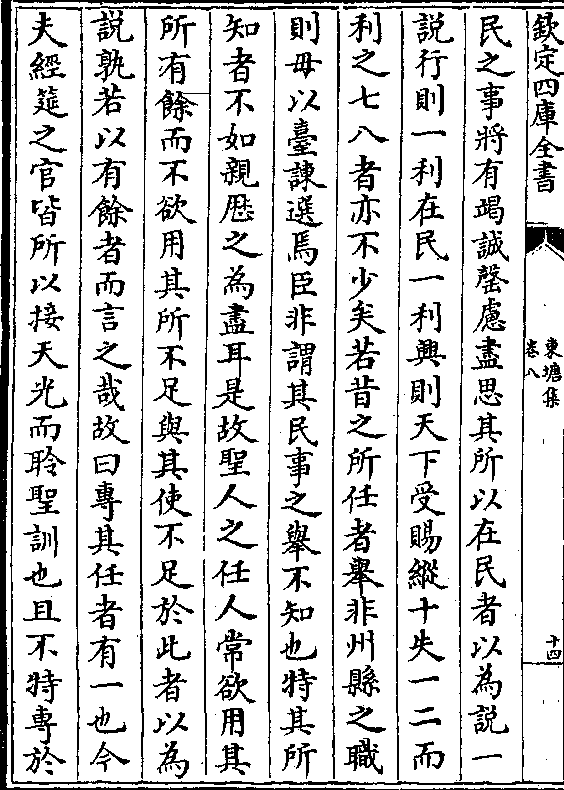 欽定四庫全書
東塘集
卷八
十四
民之事將有竭誠罄慮盡思其所以在民者以為説一
説行則一利在民一利興則天下受賜縱十失一二而
利之七八者亦不少矣若昔之所任者舉非州縣之職
則毋以臺諫選焉臣非謂其民事之舉不知也特其所
知者不如親歴之為盡耳是故聖人之任人常欲用其
所有餘而不欲用其所不足與其使不足於此者以為
説孰若以有餘者而言之哉故曰專其任者有一也今
夫經筵之官皆所以接天光而聆聖訓也且不特專於